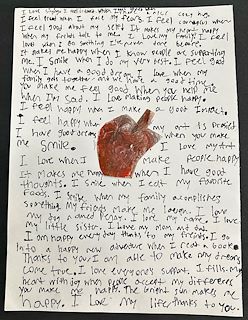 I love singing
I feel great when I face my fears. I feel courageous when
I feel good about my self. It makes my heart happy
when my friends talk to me. I love my family. I feel
loved when I do something I've never done before.
It makes me happy when I know people are supporting
me. I smile when I do my very best. I feel good
when I have a good dream. I love when my
family gets together and we have a good time.
You make me feel good when you help me
when I'm sad. I love making people happy.
I feel happy when I make a good impact.
I feel happy when my art is praised
I have good dreams when my
me smile. I love my
I love when I make people happy.
It makes me happy when I have good
thoughts. I smile when I eat my favorite
foods. I smile when my family accomplishes
something. My friends make me laugh. I love
my dog named I love my name. I love
my little sister. I love my mom and dad.
I am happy every day thanks to my friends. I go
into a happy new adventure when I read a book.
Thanks to you I am able to make my dreams
come true. I love everyone's support. I fills my
heart with joy when people accept my differences
you make me happy. The sun makes me
happy. I love my life thanks to you.